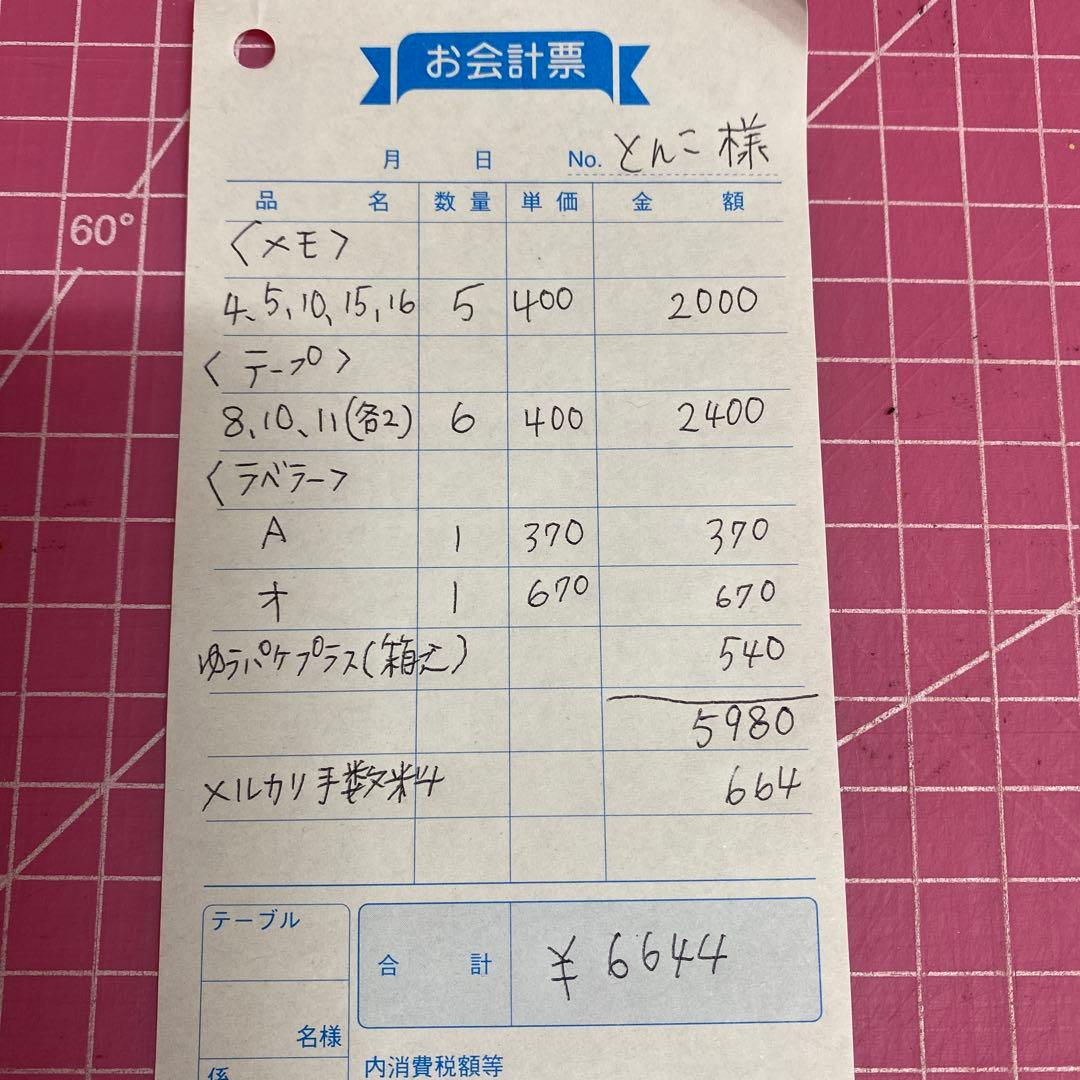 お会計票
月 日 No. とんこ様
品名 数量 単価 金額
〈メモ〉
4、5、10、15、16 5 400 2000
〈テープ〉
8、10、11(各2) 6 400 2400
〈ラベラー〉
A 1 370 370
オ 1 670 670
ゆうパケプラス(箱込) 540
5980
メルカリ手数料 664
テーブル
合計 ¥6644
名様
係
内消費税額等
60°